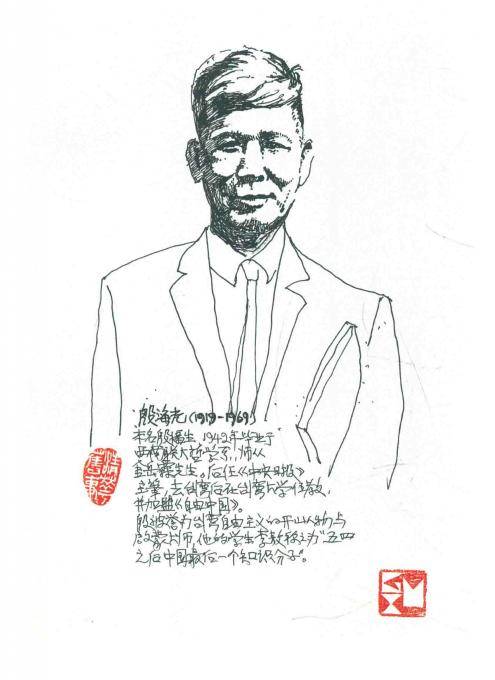 殷海光(1919-1969)
本名殷福生, 1942年毕业于
西南联大哲学系, 师从
金岳霖先生。后任《中央日报》
主笔, 去台湾后在台湾大学任教,
并加盟《自由中国》。
殷被誉为台湾自由主义的开山人物与
启蒙大师, 他的学生李敖称之为"五四
之后中国最后一个知识分子"。
清华
旧事